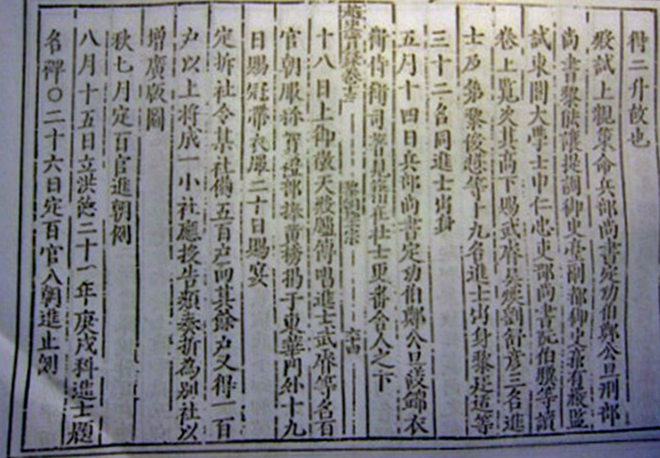 得二升故也
殿試上親策命兵部尚書定功伯鄭公旦刑部
尚書黎能讓提調御史臺副都御史有嚴監
試東閣大學士申仁忠吏部尚書阮伯驥等讀
卷上覽定其高下賜武睿吳煥劉舒彦三名進
士及第黎俊懋等十九名進士出身黎廷适等
三十二名同進士出身
五月十四日兵部尚書定功伯鄭公旦護錦衣
衛侍衛司見宿在壯士舍人之下
十八日上御敬天殿臚傳唱進士武睿等名百
官朝服称賀禮部捧黃榜揭于東華門外十九
日賜冠帶衣服二十日賜宴
定拆社令某社備五百户而其餘户又得一百
户以上將成一小社廳投告類奏折為別社以
增廣版圖
秋七月定百官進朝例
八月十五日立洪德二十一年庚戌科進士題
名碑○二十六日定百官入朝進止例